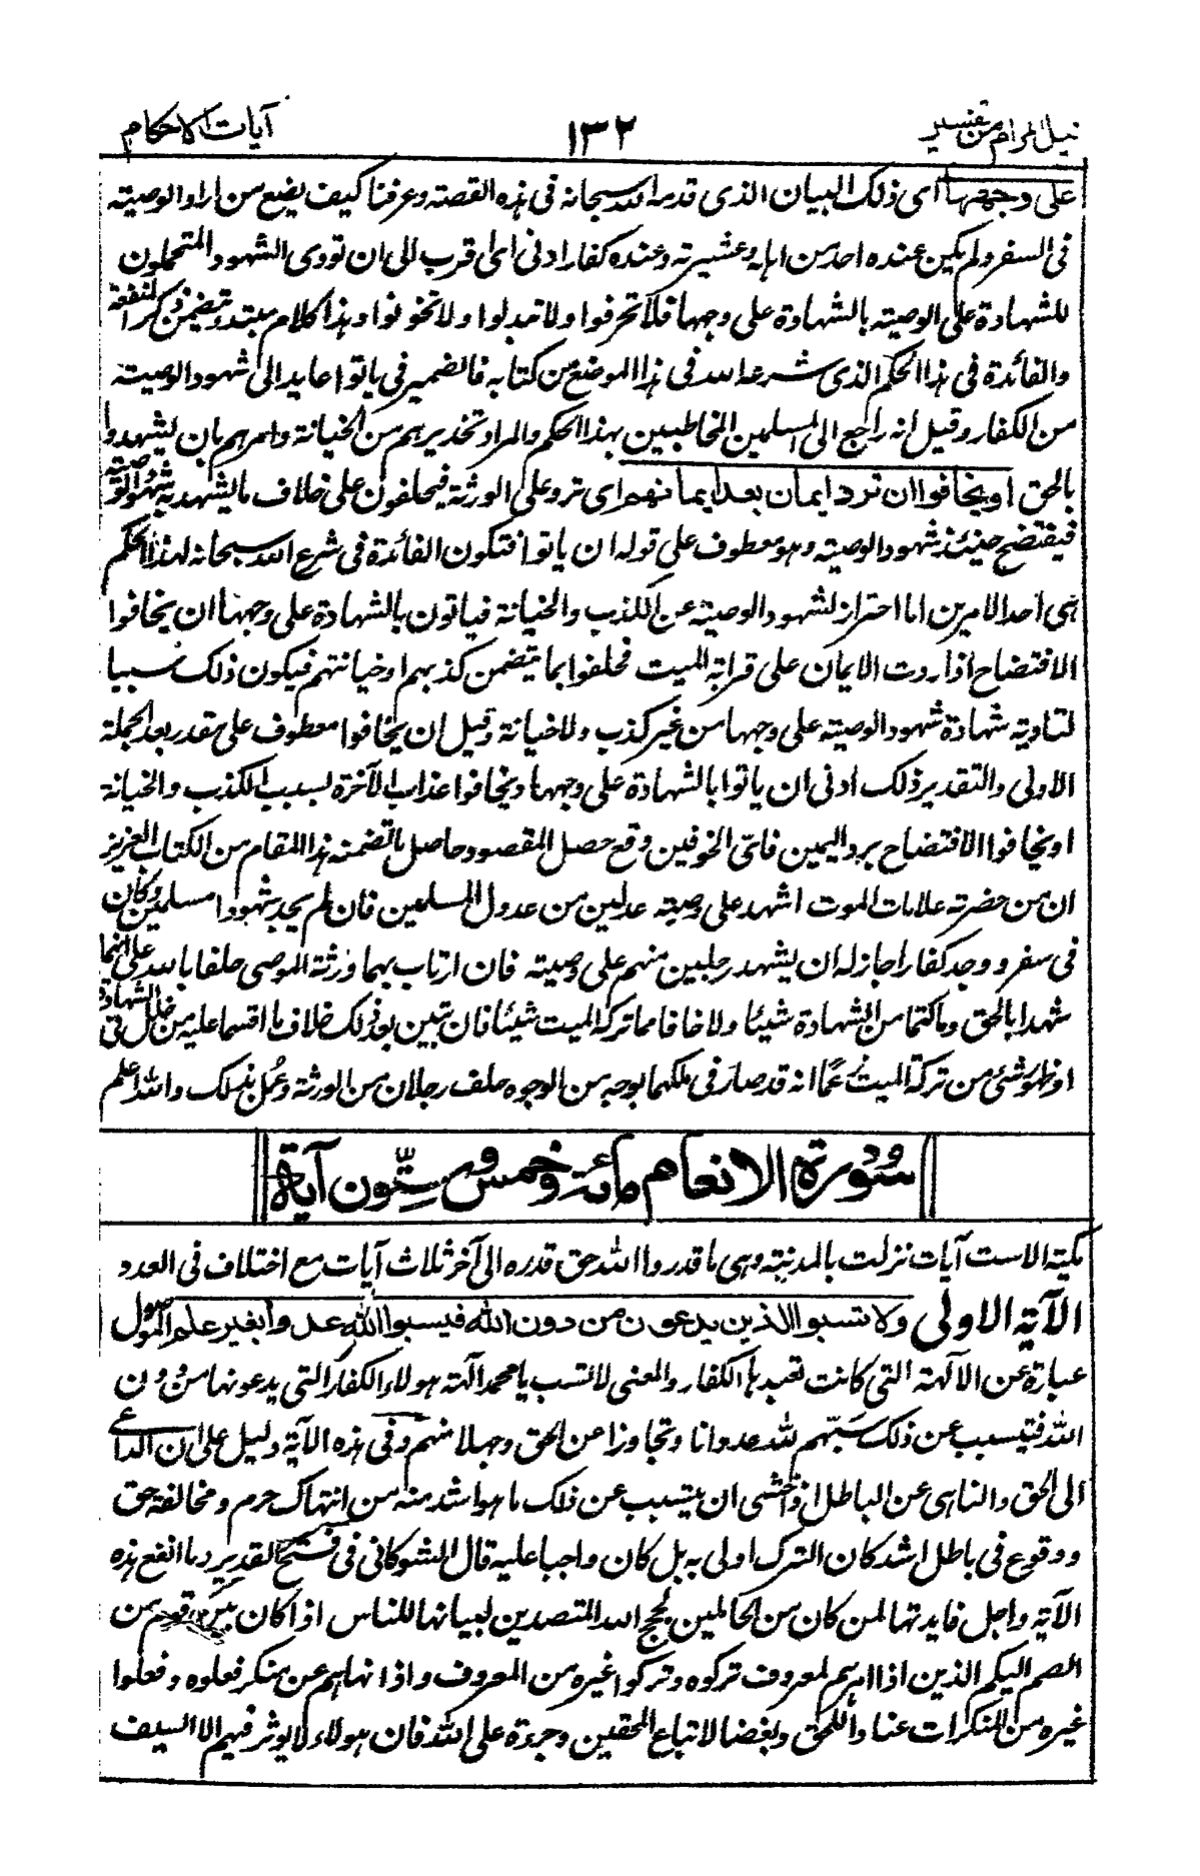 نيل المرام من تفسير ١٣٢ آيات الاحكام
على وجهها اى ذلك البيان الذى قدمه الله سبحانه فى هذه القصة وعرفنا كيف يصنع من اراد الوصية
فى السفر ولم يكن عنده احد من اهله وعشيرته وعنده كفار ادنى اى اقرب الى ان تؤدى الشهود المتحملون
للشهادة على الوصية بالشهادة على وجهها فلا تحرفوا ولا تبدلوا ولا تخونوا وهذا كلام مبتدء يتضمن ذكر المنفعة
والفائدة فى هذا الحكم الذى شرعه الله فى هذا الموضع من كتابه فالضمير فى ياتوا عايد الى شهود الوصية
من الكفار وقيل انه راجع الى المسلمين المخاطبين بهذا الحكم والمراد تحذيرهم من الخيانة وامرهم بان يشهدوا
بالحق او يخافوا ان ترد ايمان بعد ايمانهم اى ترد على الورثة فيحلفون على خلاف ما يشهد به شهود الوصية
فيفتضح حينئذ شهود الوصية وهو معطوف على قوله ان ياتوا فتكون الفائدة فى شرع الله سبحانه لهذا الحكم
هى احد الامرين اما احتراز لشهود الوصية عن الكذب والخيانة فياتون بالشهادة على وجهها ان يخافوا
الافتضاح اذا ردت الايمان على قرابة الميت فحلفوا بما يتضمن كذبهم او خيانتهم فيكون ذلك سببا
لتادية شهادة شهود الوصية على وجهها من غير كذب ولا خيانة وقيل ان يخافوا معطوف على مقدر بعد الجملة
الاولى والتقدير ذلك ادنى ان ياتوا بالشهادة على وجهها ويخافوا عذاب الآخرة بسبب الكذب والخيانة
او يخافوا الافتضاح برد اليمين فاىّ الخوفين وقع حصل المقصود وحاصل ما تضمنه هذا المقام من الكتاب العزيز
ان من حضرته علامات الموت اشهد على وصيته عدلين من عدول المسلمين فان لم يجد شهودا مسلمين وكان
فى سفر ووجد كفارا جاز له ان يشهد رجلين منهم على وصيته فان ارتاب بهما ورثة الموصى حلفا بالله على انهما
شهدا بالحق وما كتما من الشهادة شيئا ولا خانا مما تركه الميت شيئا فان تبين بعد ذلك خلاف ما اقسما عليه من خلل فى الشهادة
او ظهور شئ من تركة الميت زعما انه قد صار فى ملكهما بوجه من الوجوه حلف رجلان من الورثة وعمل بذلك والله اعلم
سُوْرة الانعام مائة وخمس وستّون آية
مكية الا ست آيات نزلت بالمدينة وهى ما قدروا الله حق قدره الى آخر ثلاث آيات مع اختلاف فى العدد
الآية الاولى ولا تسبوا الذين يدعون من دون الله فيسبوا الله عدوا بغير علم الموصول
عبارة عن الآلهة التى كانت تعبدها الكفار والمعنى لا تسب يا محمد آلهة هولاء الكفار التى يدعونها من دون
الله فيتسبب عن ذلك سبّهم لله عدوانا وتجاوزا عن الحق وجهلا منهم وفى هذه الآية دليل على ان الداعى
الى الحق والناهى عن الباطل اذا خشى ان يتسبب عن ذلك ما هو اشد منه من انتهاك حرم ومخالفة حق
ووقوع فى باطل اشد كان الترك اولى به بل كان واجبا عليه قال الشوكانى فى فتح القدير وما انفع هذه
الآية واجل فايدتها لمن كان من الحاملين لحجج الله المتصدين لبيانها للناس اذا كان بين قوم من
الصم البكم الذين اذا امرهم بمعروف تركوه وتركوا غيره من المعروف واذا نهاهم عن منكر فعلوه وفعلوا
غيره من المنكرات عنادا للحق وبغضا لاتباع المحقين وجرءة على الله فان هولاء لا يوثر فيهم الا السيف